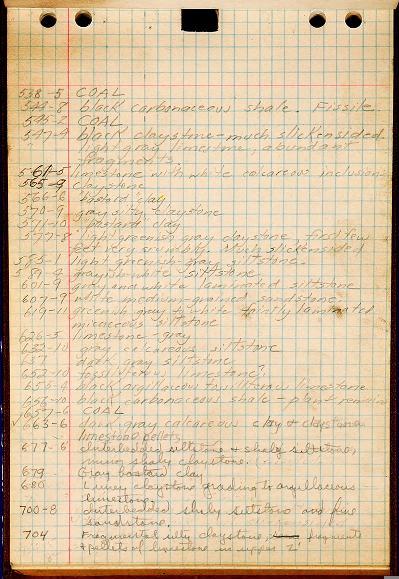 538-5 COAL
544-8 black carbonaceous shale. Fissile.
545-2 COAL
547-4 black claystone - much slickensided
" light gray limestone, abundant
fragments.
561-5 limestone with white calcareous inclusions
565-9 claystone
566-6 "bastard" clay
570-9 gray silty claystone
571-10 "bastard" clay
577-8 light greenish gray claystone first few
feet very crumbly. Much slickensided
585-1 light greenish-gray siltstone.
589-4 grayish-white siltstone
601-9 gray and white laminated siltstone
607-9 white medium-grained sandstone.
619-11 greenish gray to white faintly laminated
micaceous siltstone
626-5 limestone-gray
632-10 gray calcareous siltstone
657 dark gray siltstone
652-10 fossiliferous limestone?
656-4 black argillaceous fossiliferous limestone
656-10 black carbonaceous shale - plant remains
657-6 COAL
663-6 dark gray calcareous clay & claystone
limestone pellets
677-6 Interbedded siltstone & shaly siltstone,
minor shaly claystone.
679 Gray bastard clay
680 Limey claystone grading to argillaceous
limestone.
700-8 Interbedded shaly siltstone and fine
sandstone.
704 Fragmental silty claystone, fragments
& pellets of limestone in upper 2'